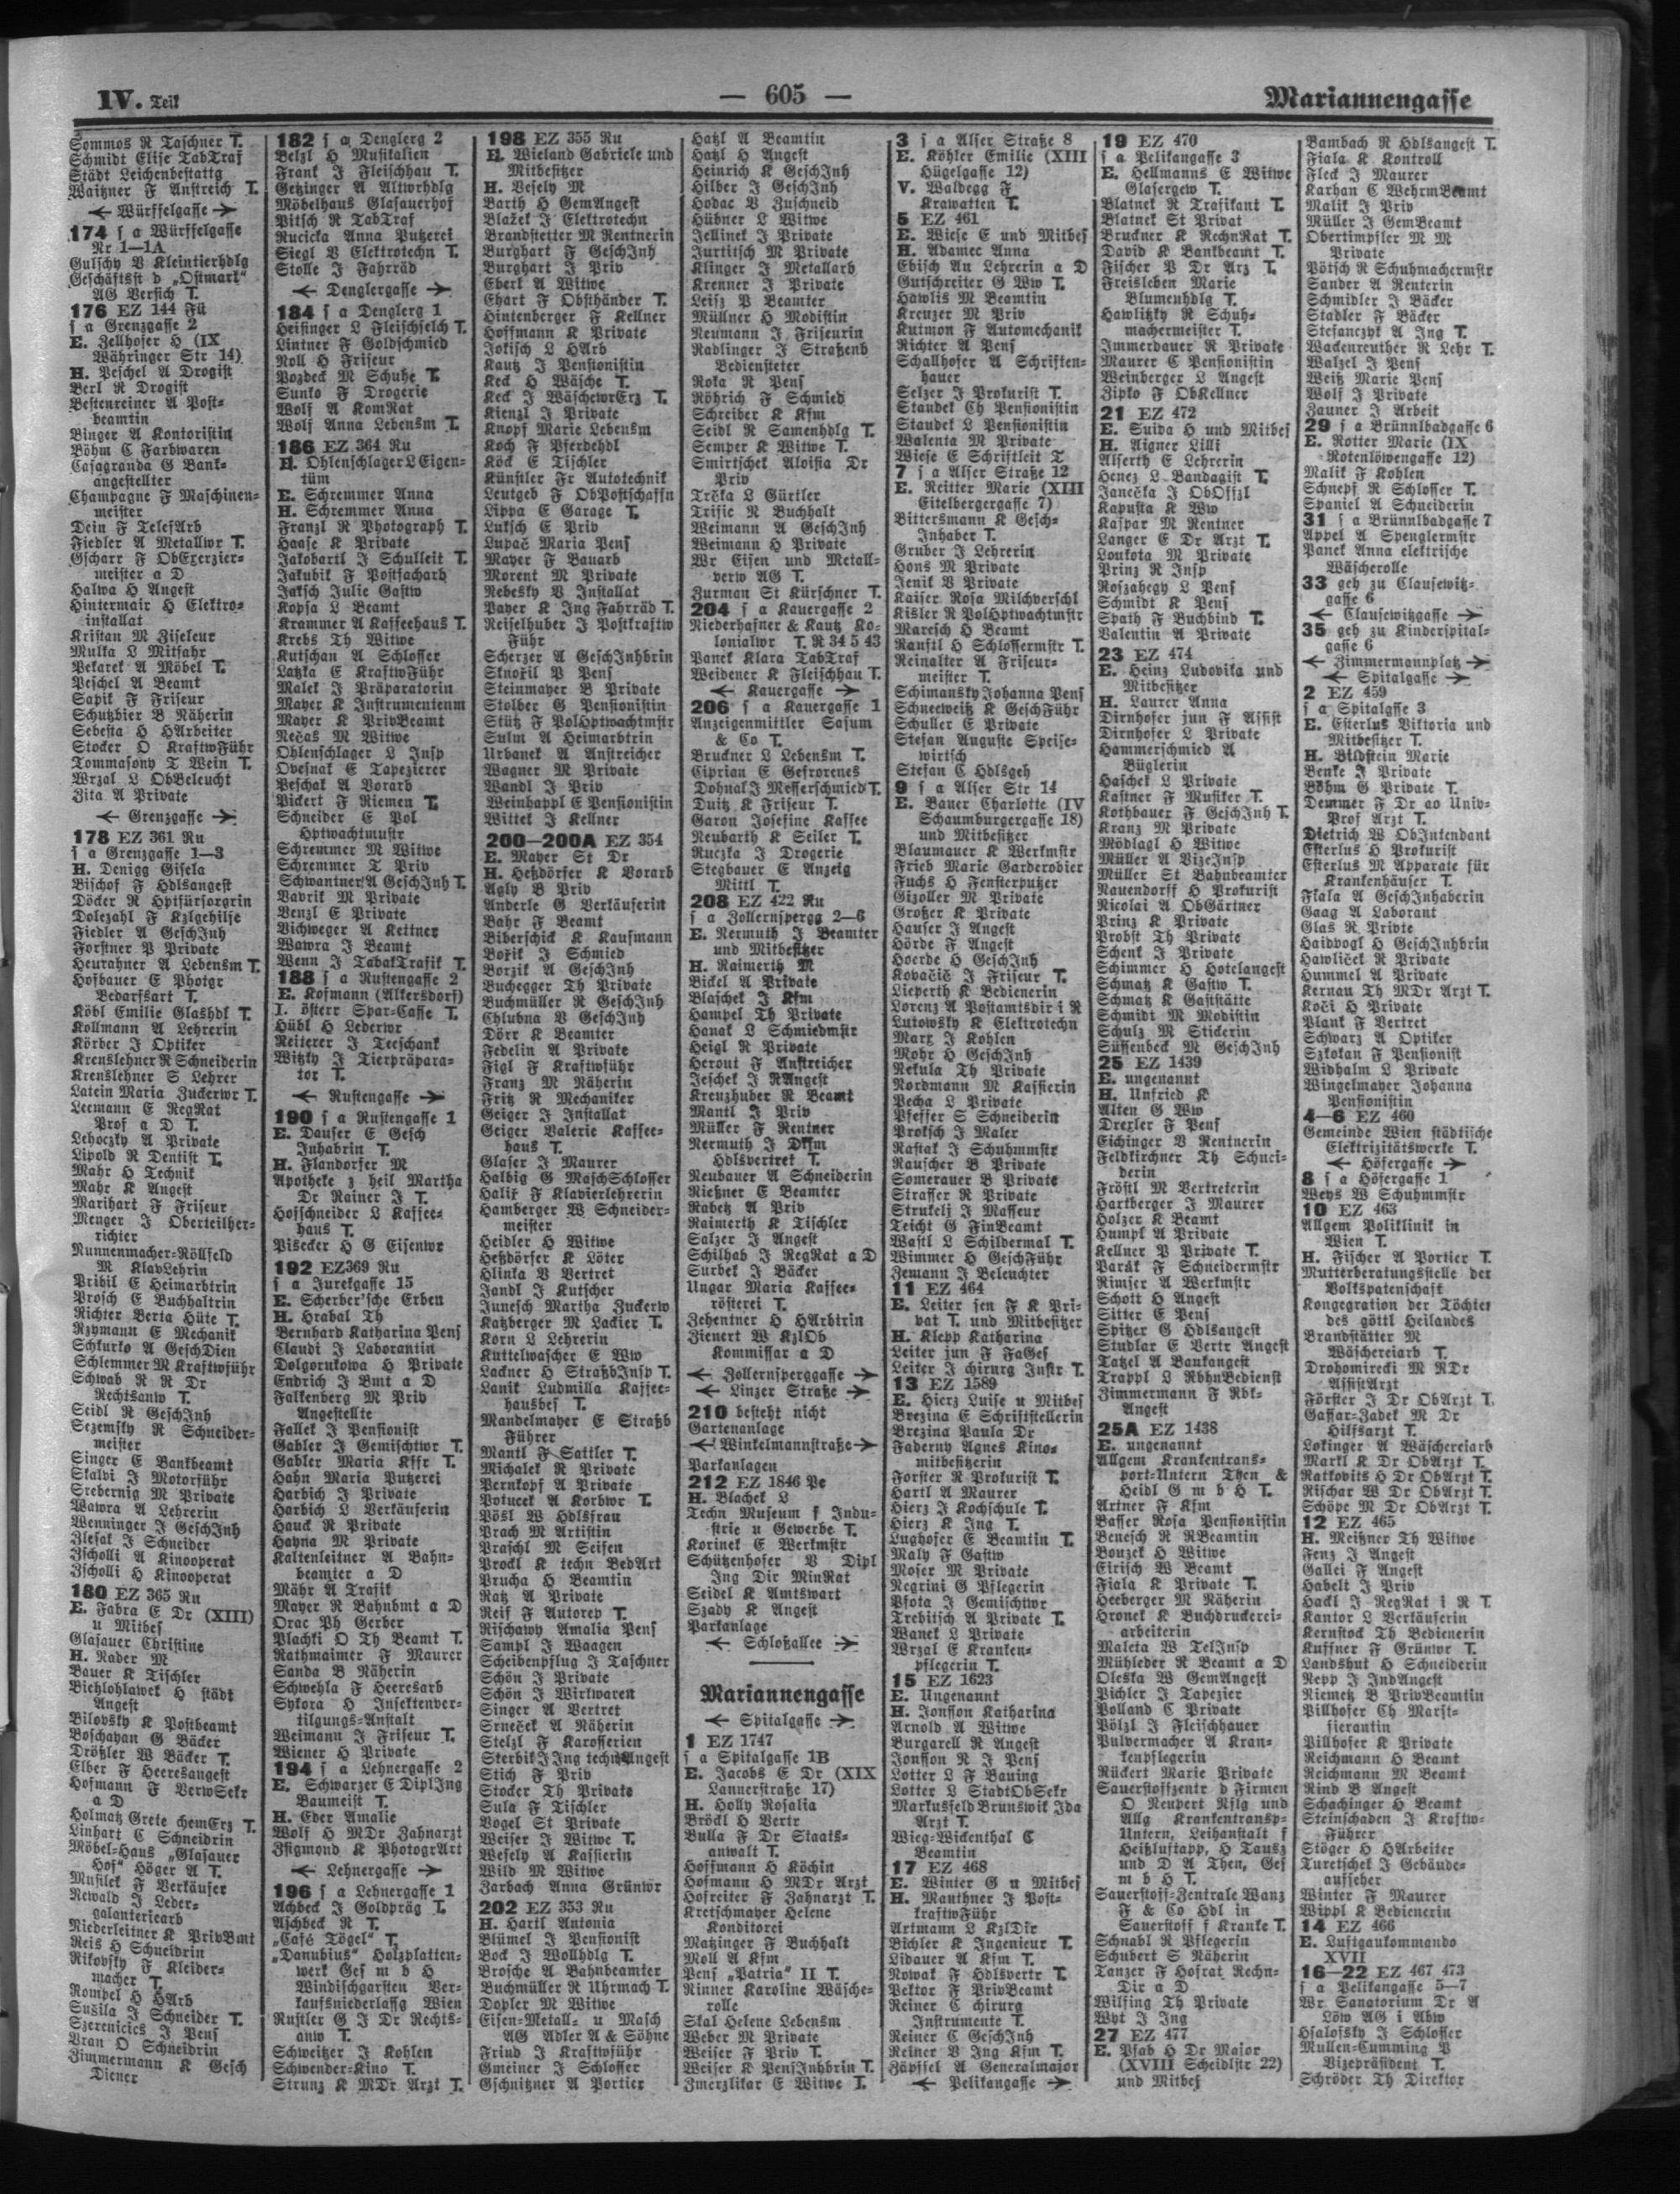 IV. Teil
— 605 —
Mariannengasse
Sommos R Taschner T.
Schmidt Elise TabTraf
Städt Leichenbestattg
Waitzner F Anstreich T.
← Würffelgasse →
174 s a Würffelgasse
Nr 1—1A
Gulschy V Kleintierhdlg
Geschäftsst d „Ostmark“
AG Versich T.
176 EZ 144 Fü
s a Grenzgasse 2
E. Zellhofer H (IX
Währinger Str 14)
H. Peschel A Drogist
Berl R Drogist
Bestenreiner A Post-
beamtin
Binger A Kontoristin
Böhm C Farbwaren
Casagranda G Bank-
angestellter
Champagne F Maschinen-
meister
Dein F TelefArb
Fiedler A Metallwr T.
Gscharr F ObExerzier-
meister a D
Halwa H Angest
Hintermair H Elektro-
installat
Kristan M Ziseleur
Mulka L Mitfahr
Pekarek A Möbel T.
Peschel A Beamt
Sapik F Friseur
Schutzbier B Näherin
Sebesta H HArbeiter
Stocker O KraftwFühr
Tommasony T Wein T.
Wrzal L ObBeleucht
Zita A Private
← Grenzgasse →
178 EZ 361 Ru
s a Grenzgasse 1—3
H. Denigg Gisela
Bischof F Hdlsangest
Döcker R Hptfürsorgrin
Dolezahl F Kzlgehilfe
Fiedler A GeschInh
Forstner P Private
Heurahner A Lebensm T.
Hofbauer E Photgr
Bedarfsart T.
Köbl Emilie Glashdl T.
Kollmann A Lehrerin
Körber J Optiker
Krenslehner R Schneiderin
Krenslehner S Lehrer
Latein Maria Zuckerwr T.
Leemann E RegRat
Prof a D T.
Lehoczky A Private
Lipold R Dentist T.
Mahr H Technik
Mahr K Angest
Marihart F Friseur
Menger J Oberteilher-
richter
Nunnenmacher-Röllfeld
M KlavLehrin
Pribil E Heimarbtrin
Prosch E Buchhaltrin
Richter Berta Hüte T.
Rzymann E Mechanik
Schkurko A GeschDien
Schlemmer M Kraftwführ
Schwab R R Dr
Rechtsanw T.
Seidl R GeschInh
Sezemsky R Schneider-
meister
Singer E Bankbeamt
Skalvi J Motorführ
Srebernig M Private
Wawra A Lehrerin
Wenninger J GeschInh
Zlesak J Schneider
Zscholli A Kinooperat
Zscholli H Kinooperat
180 EZ 365 Ru
E. Fabra E Dr (XIII)
u Mitbes
Glasauer Christine
H. Rader M
Bauer K Tischler
Bichlohlawek H städt
Angest
Bilovsky K Postbeamt
Boschapan G Bäcker
Drößler W Bäcker T.
Elber F Heeresangest
Hofmann F VerwSekr
a D
Holmatz Grete chemErz T.
Linhart C Schneidrin
Möbel-Haus „Glasauer
Hof“ Höger A T.
Musilek F Verkäufer
Newald J Leder-
galanteriearb
Niederleitner K PrivBmt
Reis H Schneidrin
Rikovsky F Kleider-
macher T.
Rompel H HArb
Sušila J Schneider T.
Szerenicics J Pens
Vran O Schneidrin
Zimmermann K Gesch
Diener
182 s a Denglerg 2
Belzl H Musikalien
Frank J Fleischhau T.
Getzinger A Altwrhdlg
Möbelhaus Glasauerhof
Pitsch R TabTraf
Rucicka Anna Putzerei
Siegl V Elektrotechn T.
Stolle J Fahrräd
← Denglergasse →
184 s a Denglerg 1
Heisinger L Fleischselch T.
Lintner F Goldschmied
Roll H Friseur
Pozdeck M Schuhe T.
Sunko F Drogerie
Wolf A KomRat
Wolf Anna Lebensm T.
186 EZ 364 Ru
H. Ohlenschlager L Eigen-
tüm
E. Schremmer Anna
H. Schremmer Anna
Franzl R Photograph T.
Haase K Private
Jakobartl J Schulleit T.
Jakubik F Postfacharb
Jaksch Julie Gastw
Kopsa L Beamt
Krammer A Kaffeehaus T.
Krebs Th Witwe
Kutschan A Schlosser
Latzka E KraftwFühr
Malek J Präparatorin
Mayer K Instrumentenm
Mayer K PrivBeamt
Nečas M Witwe
Ohlenschlager L Insp
Ovesnak E Tapezierer
Peschak A Vorarb
Pickert F Riemen T.
Schneider E Pol
Hptwachtmstr
Schremmer M Witwe
Schremmer T Priv
Schwantner A GeschInh T.
Vavrik M Private
Venzl E Private
Vichweger A Kettner
Wawra J Beamt
Wenn J TabakTrafik T.
188 s a Rustengasse 2
E. Kofmann (Alkersdorf)
I. österr Spar-Casse T.
Hübl H Lederwr
Reiterer J Teeschank
Witzky J Tierpräpara-
tor T.
← Rustengasse →
190 s a Rustengasse 1
E. Dauser E Gesch
Inhabrin T.
H. Flandorfer M
Apotheke z heil Martha
Dr Rainer J T.
Hofschneider L Kaffee-
haus T.
Pisecker H G Eisenwr
192 EZ369 Ru
s a Jurekgasse 15
E. Scherber'sche Erben
H. Hrabal Th
Bernhard Katharina Pens
Claudi J Laborantin
Dolgorukowa H Private
Endrich J Bmt a D
Falkenberg M Priv
Angestellte
Fallek J Pensionist
Gabler J Gemischtwr T.
Gabler Maria Kffr T.
Hahn Maria Putzerei
Harbich J Private
Harbich L Verkäuferin
Hauck R Private
Hayna M Private
Kaltenleitner A Bahn-
beamter a D
Mähr A Trafik
Mayer R Bahnbmt a D
Orac Ph Gerber
Plachki O Th Beamt T.
Rathmaimer F Maurer
Sanda B Näherin
Schwehla F Heeresarb
Sykora H Insektenver-
tilgungs-Anstalt
Weimann J Friseur T.
Wiener H Private
194 s a Lehnergasse 2
E. Schwarzer E DiplIng
Baumeist T.
H. Eder Amalie
Wolf H MDr Zahnarzt
Zsigmond K PhotogrArt
← Lehnergasse →
196 s a Lehnergasse 1
Achbeck J Goldpräg T.
Aschbeck R T.
„Café Tögel“ T.
„Danubius“ Holzplatten-
werk Ges m b H
Windischgarsten Ver-
kaufsniederlassg Wien
Rustler G J Dr Rechts-
anw T.
Schweitzer J Kohlen
Schwender-Kino T.
Strunz K MDr Arzt T.
198 EZ 355 Ru
E. Wieland Gabriele und
Mitbesitzer
H. Vesely M
Barth H GemAngest
Blažek J Elektrotechn
Brandstetter M Rentnerin
Burghart F GeschInh
Burghart J Priv
Eberl A Witwe
Ehart F Obsthänder T.
Hintenberger F Kellner
Hoffmann K Private
Jokisch L HArb
Kautz J Pensionistin
Keck H Wäsche T.
Keck J WäschewrErz T.
Kienzl J Private
Knopf Marie Lebensm
Koch F Pferdehdl
Köck E Tischler
Künstler Fr Autotechnik
Leutgeb F ObPostschaffn
Lippa E Garage T.
Luksch E Priv
Lupač Maria Pens
Mayer F Bauarb
Morent M Private
Nebesky V Installat
Payer K Ing Fahrräd T.
Reiselhuber J Postkraftw
Führ
Scherzer A GeschInhbrin
Sknořil P Pens
Steinmayer B Private
Stolber G Pensionistin
Stütz F PolHptwachtmstr
Sulm A Heimarbtrin
Urbanek A Anstreicher
Wagner M Private
Wandl J Priv
Weinhappl E Pensionistin
Wittek J Kellner
200—200A EZ 354
E. Mayer St Dr
H. Hetzdörfer K Vorarb
Agly B Priv
Anderle G Verkäuferin
Bahr F Beamt
Biberschick K Kaufmann
Božik J Schmied
Borzik A GeschInh
Buchegger Th Private
Buchmüller R GeschInh
Chlubna V GeschInh
Dörr K Beamter
Fedelin A Private
Figl F Kraftwführ
Franz M Näherin
Fritz R Mechaniker
Geiger J Installat
Geiger Valerie Kaffee-
haus T.
Glaser J Maurer
Halbig G MaschSchlosser
Halir F Klavierlehrerin
Hamberger W Schneider-
meister
Heidler H Witwe
Hetzdörfer K Löter
Hlinka V Vertret
Jandl J Kutscher
Junesch Martha Zuckerw
Katzberger M Lackier T.
Korn L Lehrerin
Kuttelwascher E Ww
Lackner H StraßbInsp T.
Lanik Ludmilla Kaffee-
hausbes T.
Mandelmayer E Straßb
Führer
Mantl F Sattler T.
Michalek R Private
Pernkopf A Private
Potucek A Korbwr T.
Pösl W Hdlsfrau
Prach M Artistin
Praschl M Seifen
Prockl K techn BedArt
Prucha H Beamtin
Ratz A Private
Reif F Autorep T.
Rischawy Amalia Pens
Sampl J Waagen
Scheibenpflug J Taschner
Schön J Private
Schön J Wirkwaren
Singer A Vertret
Srneček A Näherin
Stelzl F Karosserien
Sterbik J Ing techn Angest
Stich F Priv
Stocker Th Private
Sula F Tischler
Vogel St Private
Weiser J Witwe T.
Wesely A Kassierin
Wild M Witwe
Zarbach Anna Grünwr
202 EZ 353 Ru
H. Hartl Antonia
Blümel J Pensionist
Bock J Wollhdlg T.
Brosche A Bahnbeamter
Buchmüller R Uhrmach T.
Dopler M Witwe
Eisen-Metall- u Masch
AG Adler A & Söhne
Frind J Kraftwführ
Gmeiner J Schlosser
Gschnitzner A Portier
Hatzl A Beamtin
Hatzl H Angest
Heinrich K GeschInh
Hilber J GeschInh
Hodac V Zuschneid
Hübner L Witwe
Jellinek J Private
Jurtitsch M Private
Klinger J Metallarb
Krenner J Private
Leisz P Beamter
Müllner H Modistin
Neumann J Friseurin
Radlinger J Straßenb
Bediensteter
Roka R Pens
Röhrich F Schmied
Schreiber K Kfm
Seidl R Samenhdlg T.
Semper K Witwe T.
Smirtschek Aloisia Dr
Priv
Trčka L Gürtler
Trisic R Buchhalt
Weimann A GeschInh
Weimann H Private
Wr Eisen und Metall-
verw AG T.
Zurman St Kürschner T.
204 s a Kauergasse 2
Niederhafner & Kautz Ko-
lonialwr T. R 34 5 43
Panek Klara TabTraf
Weidener K Fleischhau T.
← Kauergasse →
206 s a Kauergasse 1
Anzeigenmittler Sasum
& Co T.
Bruckner L Lebensm T.
Ciprian E Gefrorenes
Dohnal J Messerschmied T.
Duitz K Friseur T.
Garon Josefine Kaffee
Neubarth K Seiler T.
Ruczka J Drogerie
Stegbauer E Anzeig
Mittl T.
208 EZ 422 Ru
s a Zollernsperg 2—6
E. Nermuth J Beamter
und Mitbesitzer
H. Raimerth M
Bickel A Private
Blaschek J Kfm
Hampel Th Private
Hanak L Schmiedmstr
Heigl R Private
Herout F Anstreicher
Jeschek J RAngest
Kreuzhuber R Beamt
Mantl J Priv
Müller F Rentner
Nermuth J Dkfm
Hdlsvertret T.
Neubauer A Schneiderin
Nietzner E Beamter
Rabetz A Priv
Raimerth K Tischler
Salzer J Angest
Schilhab J RegRat a D
Surbek J Bäcker
Ungar Maria Kaffee-
rösterei T.
Zehentner H HArbtrin
Zienert W KzlOb
Kommissar a D
← Zollernsperggasse →
← Linzer Straße →
210 besteht nicht
Gartenanlage
← Winkelmannstraße →
Parkanlagen
212 EZ 1846 Pe
H. Blachek L
Techn Museum f Indu-
strie u Gewerbe T.
Korinek E Werkmstr
Schützenhofer V Dipl
Ing Dir MinRat
Seidel K Amtswart
Szady K Angest
Parkanlage
← Schloßallee →
Mariannengasse
← Spitalgasse →
1 EZ 1747
s a Spitalgasse 1B
E. Jacobs E Dr (XIX
Lannerstraße 17)
H. Holly Rosalia
Bröckl H Vertr
Bulla F Dr Staats-
anwalt T.
Hoffmann H Köchin
Hofmann H MDr Arzt
Hofreiter F Zahnarzt T.
Kretschmayer Helene
Konditorei
Matzinger F Buchhalt
Moll A Kfm
Pens „Patria“ II T.
Rinner Karoline Wäsche-
rolle
Skal Helene Lebensm
Weber M Private
Weiser F Priv T.
Weiser K PensInhbrin T.
Zmerzlikar E Witwe T.
3 s a Alser Straße 8
E. Köhler Emilie (XIII
Hügelgasse 12)
V. Waldegg F
Krawatten T.
5 EZ 461
E. Wiese E und Mitbes
H. Adamec Anna
Ebisch An Lehrerin a D
Gutschreiter G Ww T.
Hawlis M Beamtin
Kreuzer M Priv
Kutmon F Automechanik
Richter A Pens
Schallhofer A Schriften-
hauer
Selzer J Prokurist T.
Staudek Ch Pensionistin
Staudek L Pensionistin
Walenta M Private
Wiese E Schriftleit T
7 s a Alser Straße 12
E. Reitter Marie (XIII
Eitelbergergasse 7)
Bittersmann K Gesch-
Inhaber T.
Gruber J Lehrerin
Hons M Private
Jenik V Private
Kaiser Rosa Milchverschl
Kisler R PolHptwachtmstr
Maresch H Beamt
Raustl H Schlossermstr T.
Reinalter A Friseur-
meister T.
Schimansky Johanna Pens
Schneeweiß K GeschFühr
Schuller E Private
Stefan Auguste Speise-
wirtsch
Stefan C Hdlsgeh
9 s a Alser Str 14
E. Bauer Charlotte (IV
Schaumburgergasse 18)
und Mitbesitzer
Blaumauer K Werkmstr
Fried Marie Garderobier
Fuchs H Fensterputzer
Gizoller M Private
Großer K Private
Hauser J Angest
Hörde F Angest
Hoerde H GeschInh
Kovačič J Friseur T.
Lieperth K Bedienerin
Lorenz A Postamtsdir i R
Lutowsky K Elektrotechn
Marx J Kohlen
Mohr H GeschInh
Nekula Th Private
Nordmann M Kassierin
Pecha L Private
Pfeffer S Schneiderin
Proksch J Maler
Rastak J Schuhmmstr
Rauscher B Private
Somerauer B Private
Strasser R Private
Strukelj J Masseur
Teicht G FinBeamt
Wastl L Schildermal T.
Wimmer H GeschFühr
Zemann J Beleuchter
11 EZ 464
E. Leiter sen F K Pri-
vat T. und Mitbesitzer
H. Klepp Katharina
Leiter jun F FaGes
Leiter J chirurg Instr T.
13 EZ 1589
E. Hierz Luise u Mitbes
Brezina E Schriftstellerin
Brezina Paula Dr
Faderny Agnes Kino-
mitbesitzerin
Forster R Prokurist T.
Hartl A Maurer
Hierz J Kochschule T.
Hierz K Ing T.
Lughofer E Beamtin T.
Maly F Gastw
Moser M Private
Negrini G Pflegerin
Psota J Gemischtwr
Trebitsch A Private T.
Wanek L Private
Wrzal E Kranken-
pflegerin T.
15 EZ 1623
E. Ungenannt
H. Jonsson Katharina
Arnold A Witwe
Burgarell R Angest
Jonsson R J Pens
Lotter L F Bauing
Lotter L StadtObSekr
Markusfeld Brunswik Ida
Arzt T.
Wieg-Wickenthal C
Beamtin
17 EZ 468
E. Winter G u Mitbes
H. Mauthner J Post-
kraftwFühr
Artmann L KzlDir
Bichler K Ingenieur T.
Lidauer A Kfm T.
Nowak F Hdlsvertr T.
Pektor F PrivBeamt
Reiner C chirurg
Instrumente T.
Reiner C GeschInh
Reiner V Ing Kfm T.
Zäpffel A Generalmajor
← Pelikangasse →
19 EZ 470
s a Pelikangasse 3
E. Hellmanns E Witwe
Glasergew T.
Blatnek R Trafikant T.
Blatnek St Privat
Bruckner K RechnRat T.
David K Bankbeamt T.
Fischer P Dr Arz T.
Freisleben Marie
Blumenhdlg T.
Hawlitzky R Schuh-
machermeister T.
Immerdauer R Private
Maurer C Pensionistin
Weinberger L Angest
Zipko F ObKellner
21 EZ 472
E. Suida H und Mitbes
H. Aigner Lilli
Alserth E Lehrerin
Henez L Bandagist T.
Janečka J ObOffizl
Kapusta K Ww
Kaspar M Rentner
Langer E Dr Arzt T.
Loukota M Private
Prinz R Insp
Roszahegy L Pens
Schmidt K Pens
Spath F Buchbind T.
Valentin A Private
23 EZ 474
E. Heinz Ludovika und
Mitbesitzer
H. Laurer Anna
Dirnhofer jun F Assist
Dirnhofer L Private
Hammerschmied A
Büglerin
Haschek L Private
Kastner F Musiker T.
Kothbauer F GeschInh T.
Kranz M Private
Mödlagl H Witwe
Müller A VizeInsp
Müller St Bahnbeamter
Nauendorff H Prokurist
Nicolai A ObGärtner
Prinz K Private
Probst Th Private
Schenk J Private
Schimmer H Hotelangest
Schmatz K Gastw T.
Schmatz K Gaststätte
Schmidt M Modistin
Schulz M Stickerin
Süssenbeck M GeschInh
25 EZ 1439
E. ungenannt
H. Unfried K
Alten G Ww
Drexler F Pens
Eichinger V Rentnerin
Feldkirchner Th Schnei-
derin
Fröstl M Vertreterin
Hartberger J Maurer
Holzer K Beamt
Humpl A Private
Kellner P Private T.
Parák F Schneidermstr
Rimser A Werkmstr
Schott H Angest
Sitter E Pens
Spitzer G Hdlsangest
Studlar E Vertr Angest
Tatzel A Bankangest
Trappl L RbhnBedienst
Zimmermann F Rbk-
Angest
25A EZ 1438
E. ungenannt
Allgem Krankentrans-
port-Untern Then &
Heidl G m b H T.
Artner F Kfm
Basser Rosa Pensionistin
Benesch R RBeamtin
Bouzek H Witwe
Eirisch W Beamt
Fiala K Private T.
Heeberger M Näherin
Hronek K Buchdruckerei-
arbeiterin
Maleta W TelInsp
Mühleder R Beamt a D
Oleska W GemAngest
Pichler J Tapezier
Polland C Private
Pölzl J Fleischhauer
Pulvermacher A Kran-
kenpflegerin
Rückert Marie Private
Sauerstoffzentr d Firmen
O Neupert Nflg und
Allg Krankentransp-
Untern, Leihanstalt f
Heißluftapp, H Tausz
und D A Then, Ges
m b H T.
Sauerstoff-Zentrale Wanz
F & Co Hdl in
Sauerstoff f Kranke T.
Schnabl R Pflegerin
Schubert S Näherin
Tanzer F Hofrat Rechn-
Dir a D
Wilfing Th Private
Wyt J Ing
27 EZ 477
E. Pfab H Dr Major
(XVIII Scheidlstr 22)
und Mitbes
Bambach R Hdlsangest T.
Fiala K Kontroll
Fleck J Maurer
Karhan C WehrmBeamt
Malik J Priv
Müller J GemBeamt
Obertimpfler M M
Private
Pötsch R Schuhmachermstr
Sander A Renterin
Schmidler J Bäcker
Stadler F Bäcker
Stefanczyk A Ing T.
Wackenreuther R Lehr T.
Walzel J Pens
Weiß Marie Pens
Wolf J Private
Zauner J Arbeit
29 s a Brünnlbadgasse 6
E. Rotter Marie (IX
Rotenlöwengasse 12)
Malik F Kohlen
Schnepf R Schlosser T.
Spaniel A Schneiderin
31 s a Brünnlbadgasse 7
Appel A Spenglermstr
Panek Anna elektrische
Wäscherolle
33 geh zu Clausewitz-
gasse 6
← Clausewitzgasse →
35 geh zu Kinderspital-
gasse 6
← Zimmermannplatz →
← Spitalgasse →
2 EZ 459
s a Spitalgasse 3
E. Esterlus Viktoria und
Mitbesitzer T.
H. Bildstein Marie
Benke J Private
Böhm G Private T.
Demmer F Dr ao Univ-
Prof Arzt T.
Dietrich W ObIntendant
Esterlus H Prokurist
Esterlus M Apparate für
Krankenhäuser T.
Fiala A GeschInhaberin
Gaag A Laborant
Glas R Privte
Haidvogl H GeschInhbrin
Hawliček R Private
Hummel A Private
Kernau Th MDr Arzt T.
Koči H Private
Plank F Vertret
Schwarz A Optiker
Szkokan F Pensionist
Widhalm L Private
Wingelmayer Johanna
Pensionistin
4—6 EZ 460
Gemeinde Wien städtische
Elektrizitätswerke T.
← Höfergasse →
8 s a Höfergasse 1
Weys W Schuhmmstr
10 EZ 463
Allgem Poliklinik in
Wien T.
H. Fischer A Portier T.
Mutterberatungsstelle der
Volkspatenschaft
Kongregation der Töchter
des göttl Heilandes
Brandstätter M
Wäschereiarb T.
Drohomirecki M MDr
AssistArzt
Förster J Dr ObArzt T.
Gassar-Zadek M Dr
Hilfsarzt T.
Lokinger A Wäschereiarb
Markl K Dr ObArzt T.
Ratkovits H Dr ObArzt T.
Rischar W Dr ObArzt T.
Schöpe M Dr ObArzt T.
12 EZ 465
H. Meitzner Th Witwe
Fenz J Angest
Gallei F Angest
Habelt J Priv
Hackl J RegRat i R T.
Kantor L Verkäuferin
Kernstock Th Bedienerin
Kuffner F Grünwr T.
Landshut H Schneiderin
Nepp J IndAngest
Niemetz B PrivBeamtin
Pillhofer Ch Marki-
sierantin
Pillhofer K Private
Reichmann H Beamt
Reichmann M Beamt
Rind B Angest
Schachinger H Beamt
Steinschaden J Kraftw-
Führer
Stöger H HArbeiter
Turetschek J Gebäude-
aufseher
Winter F Maurer
Wippl K Bedienerin
14 EZ 466
E. Luftgaukommando
XVII
16—22 EZ 467 473
s a Pelikangasse 5—7
Wr. Sanatorium Dr A
Löw AG i Abw
Hsalofsky J Schlosser
Mullen-Cumming V
Vizepräsident T.
Schröder Th Direktor